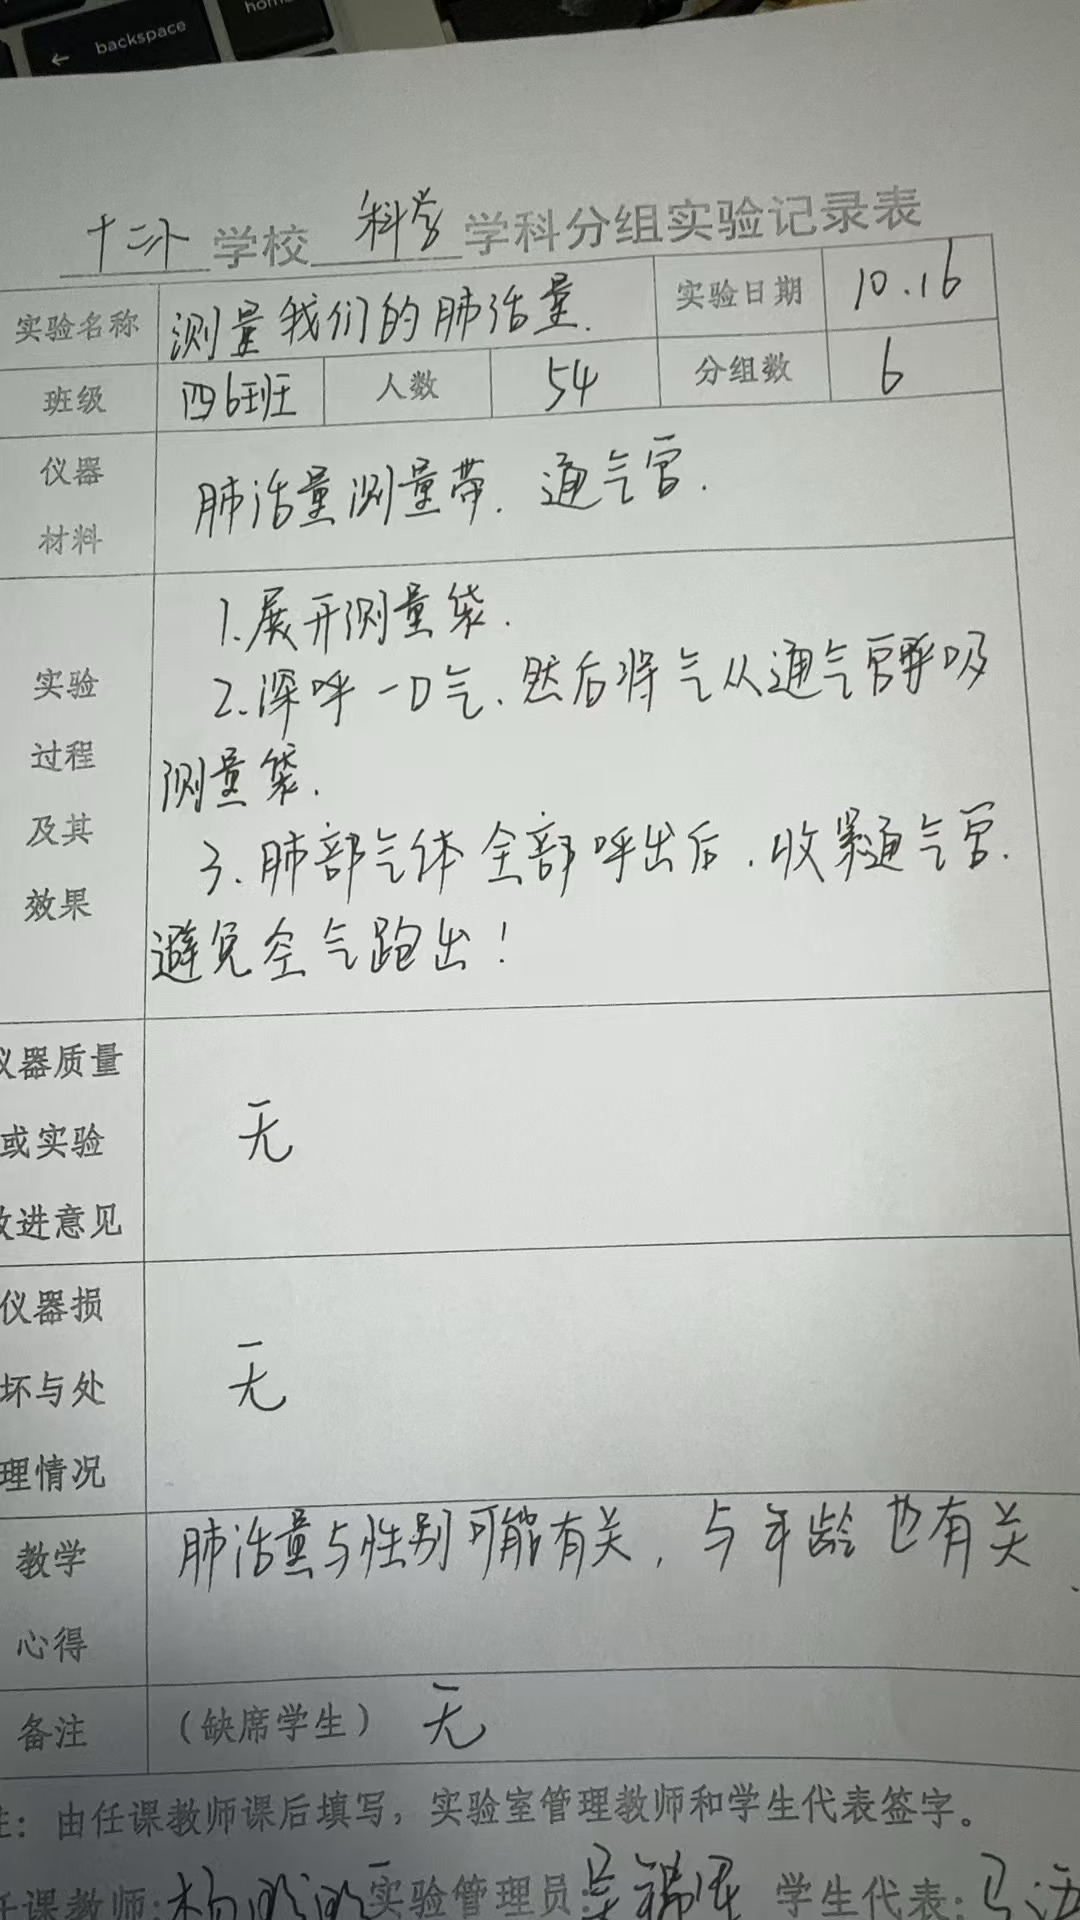 ← backspace
home
十二小学校 科学 学科分组实验记录表
实验名称 测量我们的肺活量. 实验日期 10.16
班级 四6班 人数 54 分组数 6
仪器
材料
肺活量测量带. 通气官.
实验
过程
及其
效果
1.展开测量袋.
2.深呼一口气.然后将气从通气官呼吸
测量袋.
3.肺部气体全部呼出后.收紧通气官.
避免空气跑出!
仪器质量
或实验
改进意见
无
仪器损
坏与处
理情况
无
教学
心得
肺活量与性别可能有关,与年龄也有关.
备注 (缺席学生) 无
注:由任课教师课后填写,实验室管理教师和学生代表签字。
任课教师:杨 实验管理员: 学生代表:马